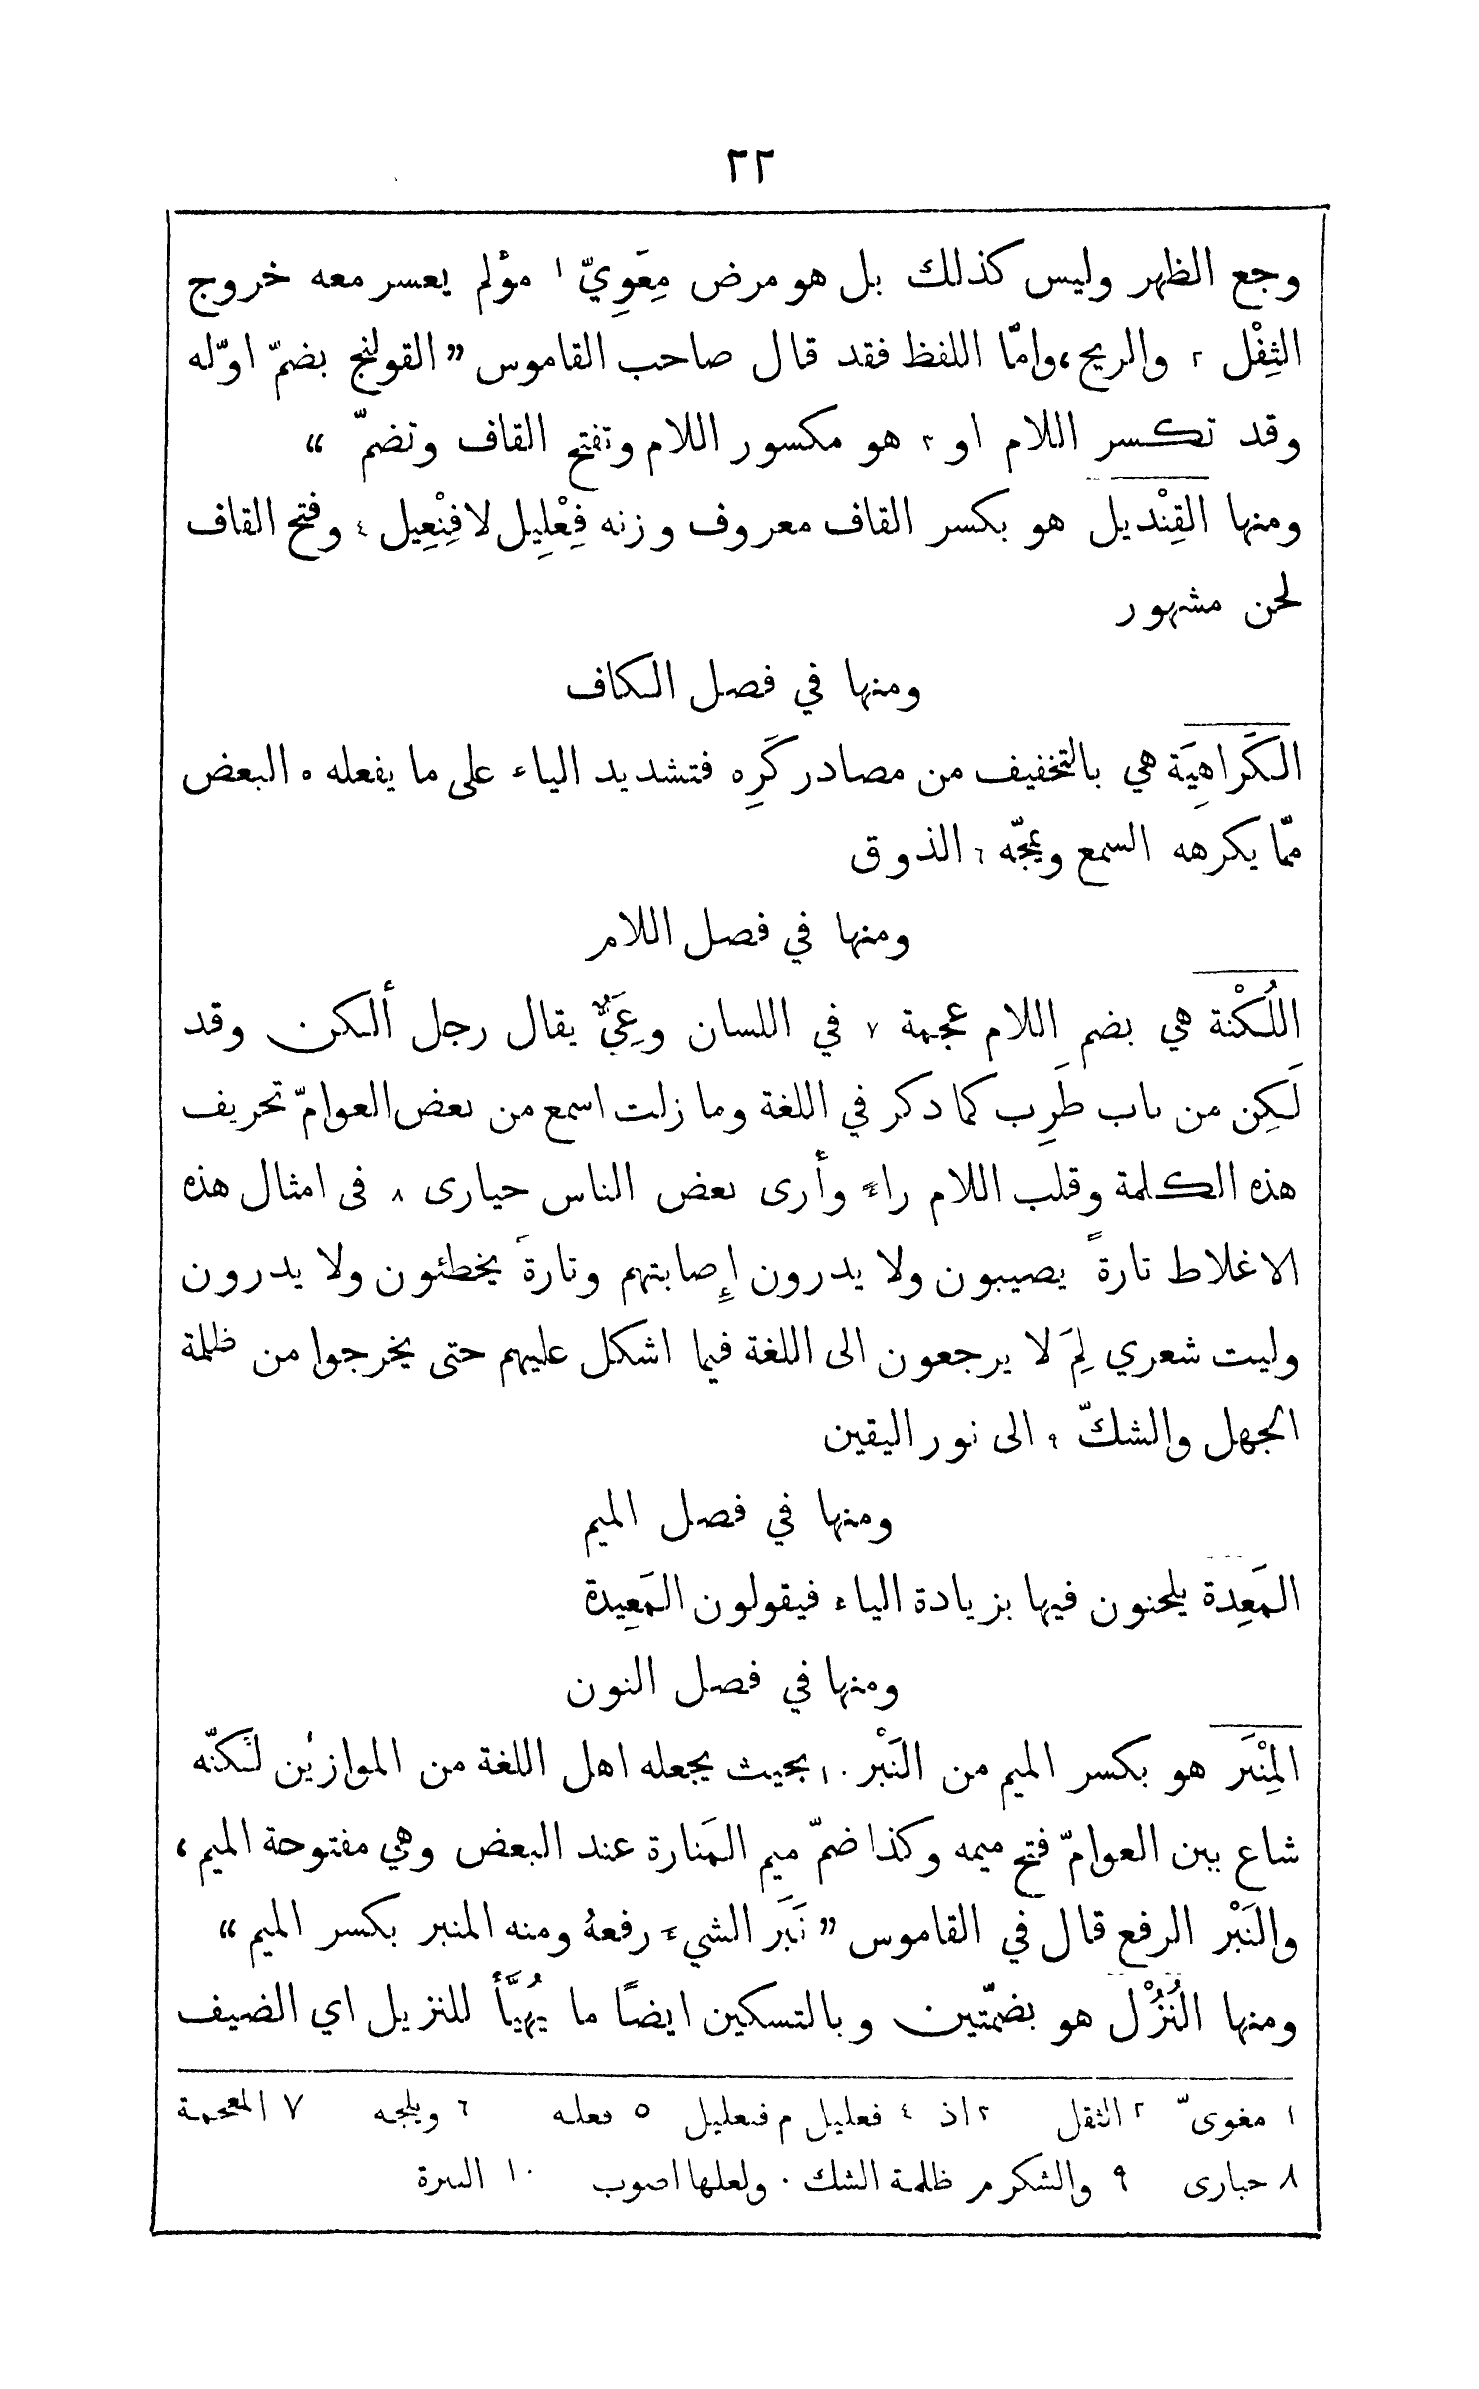 ٢٢
وجع الظهر وليس كذلك بل هو مرض مِعَوِيّ ١ مؤلم يعسر معه خروج
الثِفْل ٢ والريح ، وامّا اللفظ فقد قال صاحب القاموس ” القولنج بضمّ اوّله
وقد تكسر اللام او ٣ هو مكسور اللام وتفتح القاف وتضمّ “
ومنها القِنْديل هو بكسر القاف معروف وزنه فِعْلِيل لا فِنْعِيل ٤ وفتح القاف
لحن مشهور
ومنها في فصل الكاف
الكَراهِيَة هي بالتخفيف من مصادر كَرِه فتشديد الياء على ما يفعله ٥ البعض
ممّا يكرهه السمع ويمجّه ٦ الذوق
ومنها في فصل اللام
اللُكْنة هي بضم اللام عجمة ٧ في اللسان وعِيٌّ يقال رجل ألكن وقد
لَكِن من باب طَرِب كما ذكر في اللغة وما زلت اسمع من بعض العوامّ تحريف
هذه الكلمة وقلب اللام راءً وأرى بعض الناس حيارى ٨ فى امثال هذه
الاغلاط تارةً يصيبون ولا يدرون إصابتهم وتارةً يخطئون ولا يدرون
وليت شعري لِمَ لا يرجعون الى اللغة فيما اشكل عليهم حتى يخرجوا من ظلمة
الجهل والشكّ ٩ الى نور اليقين
ومنها في فصل الميم
المَعِدة يلحنون فيها بزيادة الياء فيقولون المَعِيدة
ومنها في فصل النون
المِنْبَر هو بكسر الميم من النَبْر ١٠ بحيث يجعله اهل اللغة من الموازين لكنّه
شاع بين العوامّ فتح ميمه وكذا ضمّ ميم المَنارة عند البعض وهي مفتوحة الميم ،
والنَبْر الرفع قال في القاموس ” نَبَر الشيءَ رفعهُ ومنه المنبر بكسر الميم “
ومنها النُزُْل هو بضمّتين وبالتسكين ايضًا ما يُهيَّأ للنزيل اي الضيف
١ مغوىّ ٢ الثقل ٣ اذ ٤ فعليل م فنعليل ٥ فعله ٦ ويلجه ٧ المعجمة
٨ حبارى ٩ والشكر م ظلمة الشك ٠ ولعلها اصوب ١٠ النبرة